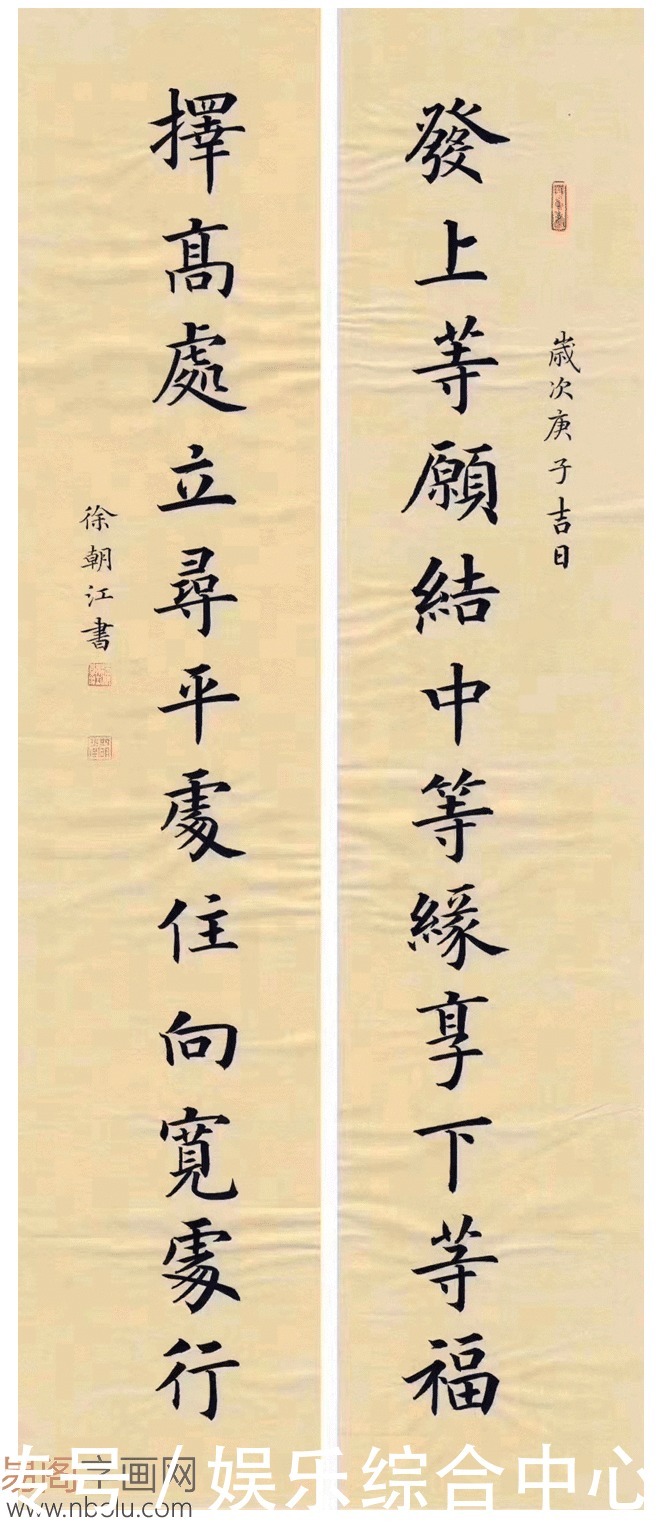 歲次庚子吉日
發上等願結中等緣享下等福
擇高處立尋平處住向寬處行
徐朝江書
字画网
号/娱乐综合中心